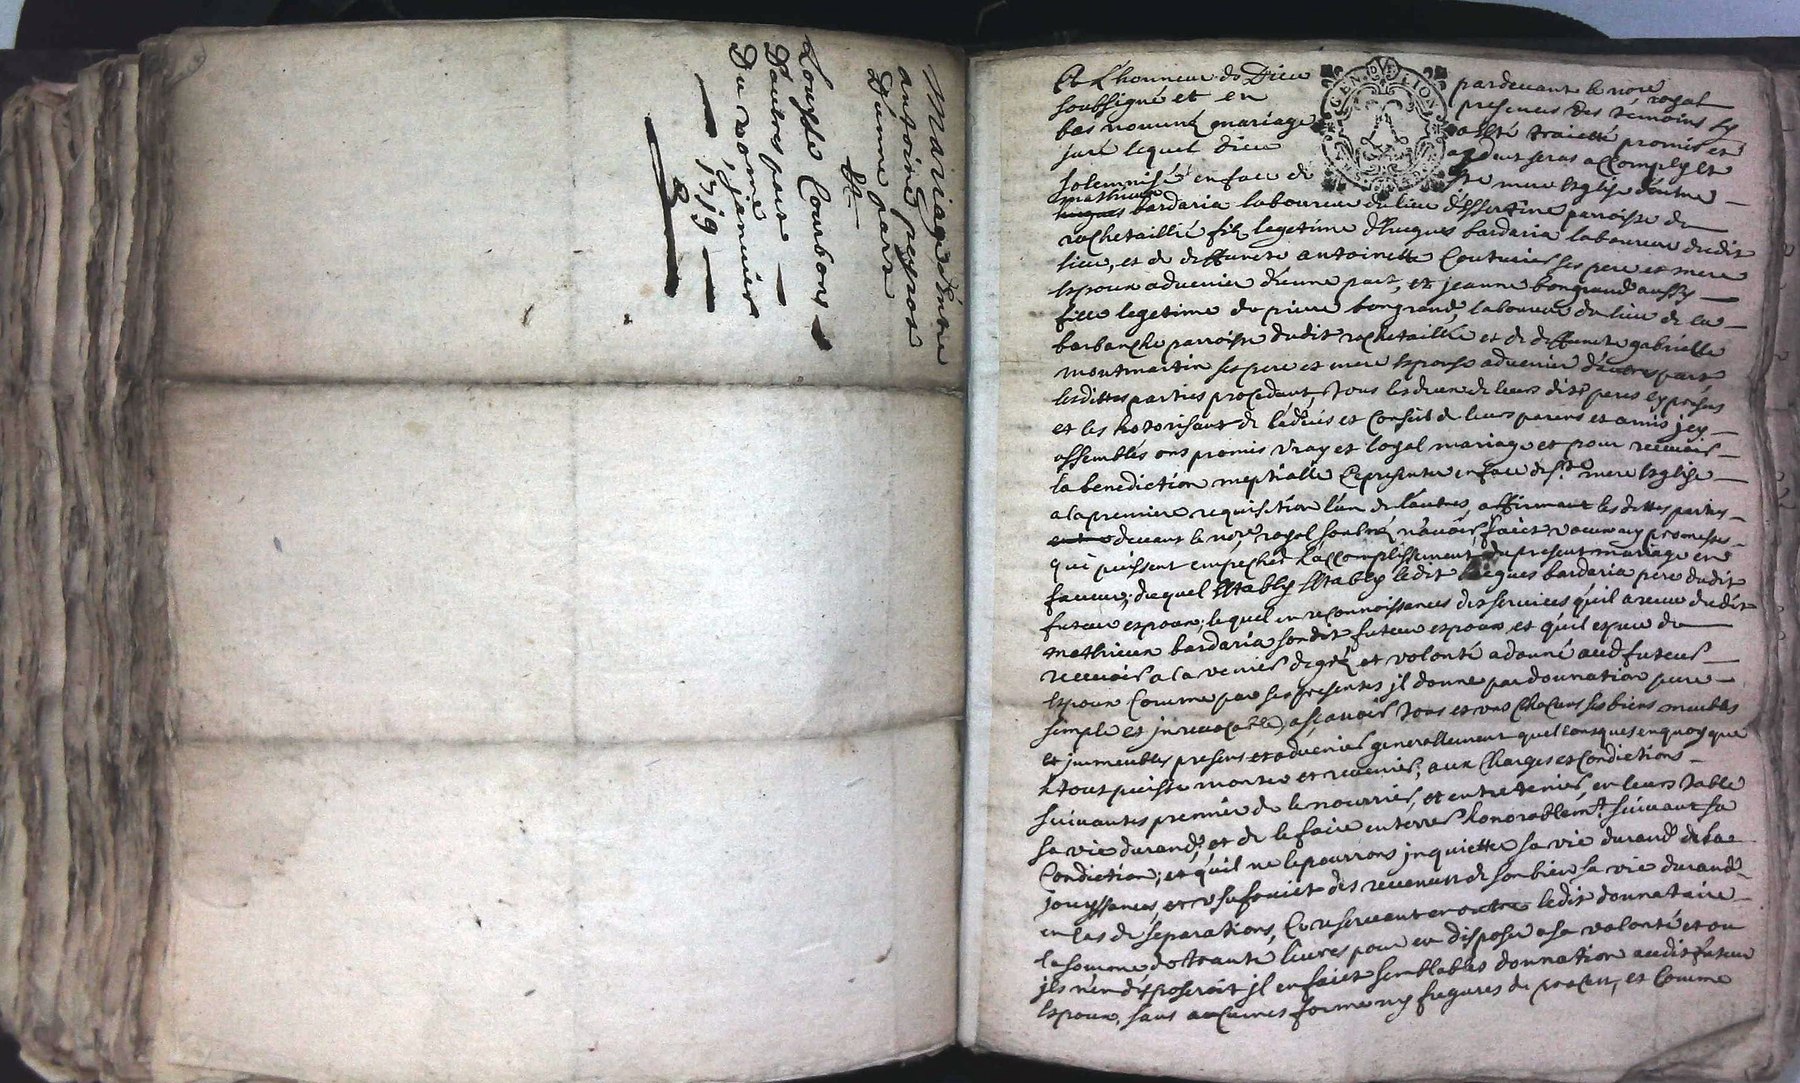 Mariage d'entre
antoine peyrot
D'unne part
Et
Louyse Courbons
D'autre part
Du xxme janvier
1719
A L'honneur de Dieu pardevant le nore royal
soubsigné et en presences des temoins cy
bas nommé mariage a esté traicté promis et
juré lequel dieu aydant seras accomply et
solemnisé en face de ste mere Esglise d'entre
mathieu
bardaria laboureur du lieu d'Essertine parroisse de
rochetaillié filz legetime d'Hugues bardaria laboureur dudit
lieu, et de deffuncte antoinette Couturier ses pere et mere
Espoux advenier d'unne part, et jeanne bongrand aussy
fille legetime de pierre bongrand laboureur du lieu de la
barbanche parroisse dudit rochetaillié et de deffuncte gabrielle
montmartin ses pere et mere Espouse advenier d'autre part
lesdittes parties procedant, tous les deux de leurs dits peres cy presens
et les hotorisant de l'advis et Conseil de leurs parens et amis jcy
assemblés ont promis vray et loyal mariage et pour recevoir
la benediction nuptialle se presenter en face de ste mere Esglise
a la premiere requisition l'un de l'autre, affirmant lesdittes parties
devant le nore royal soubné n'avoir faict aucunny promesses
qui puissent empecher l'accomplissement du present mariage en
faveur duquel Estably Estably ledit hugues bardaria pere dudit
futeur espoux; lequel en reconnoissances des services qu'il a receu dudit
mathieu bardaria son dit futeur espoux et qu'il espere de
recevoir a la venier de gré et volonté a donné aud futeur
Espoux Comme par ses presentes jl donne par donnation pure
simple et jnrevocable, ascavoir tous et uns Chacuns ses biens meubles
et jmmeubles presens et advenier generallement quelconsques en quoy que
le tout puisse monter et revenir; aux Charges et Condictions
suivantes premier de le nourrir, et entretenir, en leurs table
sa vie durand, et de le faire enterrer honorablemt suivant sa
Condiction; et qu'il ne le pourrons jnquietter sa vie durand de la
jouyssances, et usufruict des revenus de son bien sa vie durand
en Cas de separations, Ce reservant en outre ledit donnataire
la somme de trante livres pour en disposer a sa volonté et ou
jls n'en disposeroit jl en faict semblables donnation audit futeur
Espoux, sans aucunes forme ny fugures de procest, et Comme